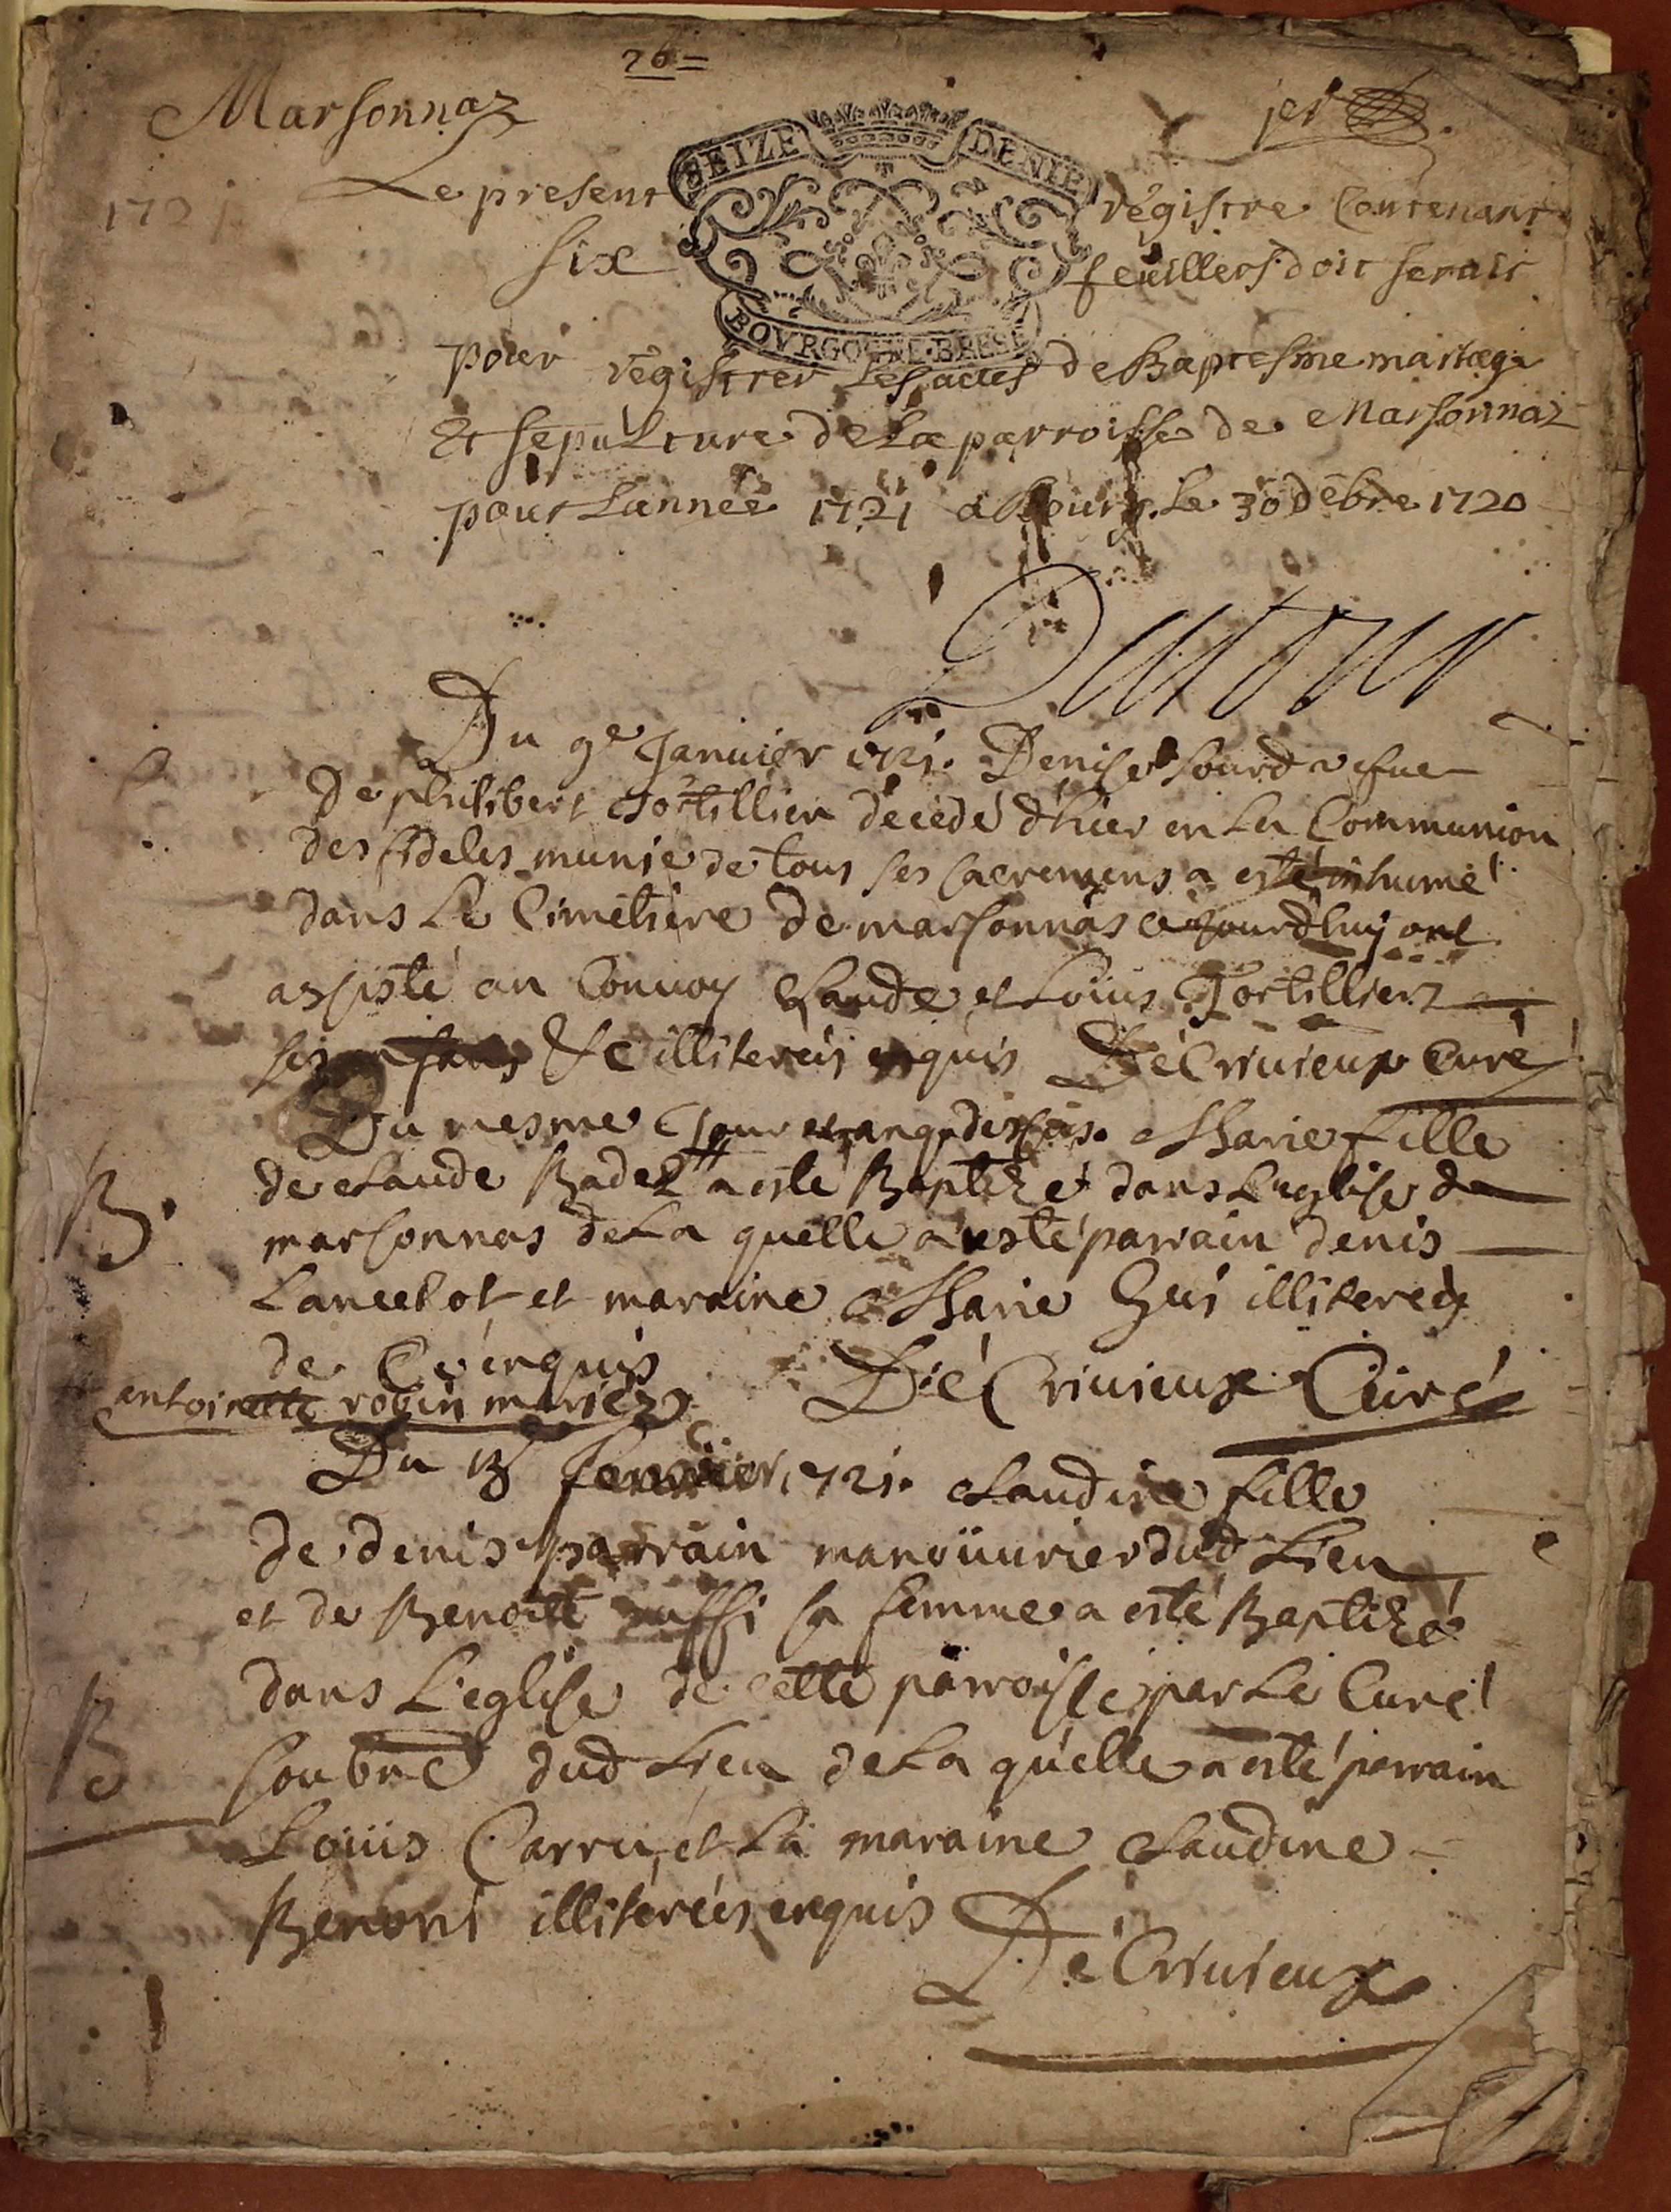 26=
Marsonnaz
jer
1721
SEIZE DENIE
Le present régistre Contenant
six feuillets doit servir
BOVRGOGNE·BRESSE
pour régistrer Les actes de Baptesme mariage
Et sepulture de La parroisse de Marsonnaz
pour Lannée 1721 a Bourg Le 30 debre 1720
Du 9e Januier 1721. Denise Sourd vefue
de philibert Tortillier décédé d'hier en La Communion
des fideles munie de tous ses sacremens a esté inhumé
dans Le Cimetiere de marsonnas ce jourd'huy ont
assisté au Conuoy Claude et Loüis Tortilliers
ses enfans illiterés enquis DéCriuieux Curé
Du mesme Jour et an que dessus. Marie fille
de Claude Badel a esté Baptizé dans L'eglise de
marsonnas de La quelle a esté parrain denis
Lancelot et maraine Marie Gui illiterés
de Ce enquis DéCriuieux Curé
antoinette robin mariez
Du feurier 1721. Claudine fille
de denis parrain manoüurier dud Lieu
et de Benoitte ruffi sa femme a esté Baptizé
dans L'eglise de cette parroisse par Le Curé
B.
B
soubné dud Lieu de La quelle a esté parrain
Loüis Carru, et La maraine Claudine
Benoni illiterées enquis
DéCriuieux